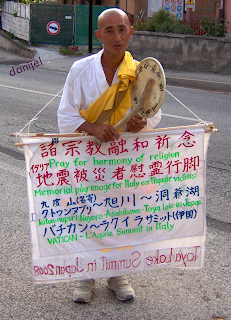 danijel
諸宗教融和祈念
イタリア Pray for harmony of religion
地震被災者慰霊行脚
Memorial pilgrimage for Italy earthquake victims
九度山(名寄)〜旭川〜洞爺湖
クトゥンアプリ
Nayoro-Asahikawa-Toya lake in Japan
バチカン〜ラクイラサミット(伊国)
VATICAN-L'Aquila Summit in Italy
Toya Lake Summit in Japan 2008